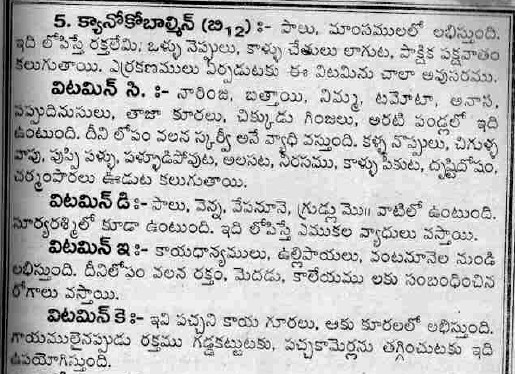 5. క్యానోకోబాల్మిన్ (బి12) :- పాలు, మాంసములలో లభిస్తుంది.
ఇది లోపిస్తే రక్తలేమి, ఒళ్ళు నెప్పులు, కాళ్ళు చేతులు లాగుట, పాక్షిక పక్షవాతం
కలుగుతాయి. ఎర్రకణములు ఏర్పడుటకు ఈ విటమిను చాలా అవసరము.
విటమిన్ సి. :- నారింజ, బత్తాయి, నిమ్మ, టమోటా, అనాస,
పప్పుదినుసులు, తాజా కూరలు, చిక్కుడు గింజలు, అరటి పండ్లలో ఇది
ఉంటుంది. దీని లోపం వలన స్కర్వీ అనే వ్యాధి వస్తుంది. కళ్ళ నొప్పులు, చిగుళ్ళ
వాపు, పుప్పి పళ్ళు, పళ్ళూడిపోవుట, అలసట, నీరసము, కాళ్ళు పీకుట, దృష్టిదోషం,
చర్మంపొరలు ఊడుట కలుగుతాయి.
విటమిన్ డి :- పాలు, వెన్న, వేపనూనె, గ్రుడ్లు మొ॥ వాటిలో ఉంటుంది.
సూర్యరశ్మిలో కూడా ఉంటుంది. ఇది లోపిస్తే ఎముకల వ్యాధులు వస్తాయి.
విటమిన్ ఇ :- కాయధాన్యములు, ఉల్లిపాయలు, వంటనూనెల నుండి
లభిస్తుంది. దీనిలోపం వలన రక్తం, మెదడు, కాలేయము లకు సంబంధించిన
రోగాలు వస్తాయి.
విటమిన్ కె :- ఇవి పచ్చని కాయ గూరలు, ఆకు కూరలలో లభిస్తుంది.
గాయములైనప్పుడు రక్తము గడ్డకట్టుటకు, పచ్చకామెర్లను తగ్గించుటకు ఇది
ఉపయోగిస్తుంది.